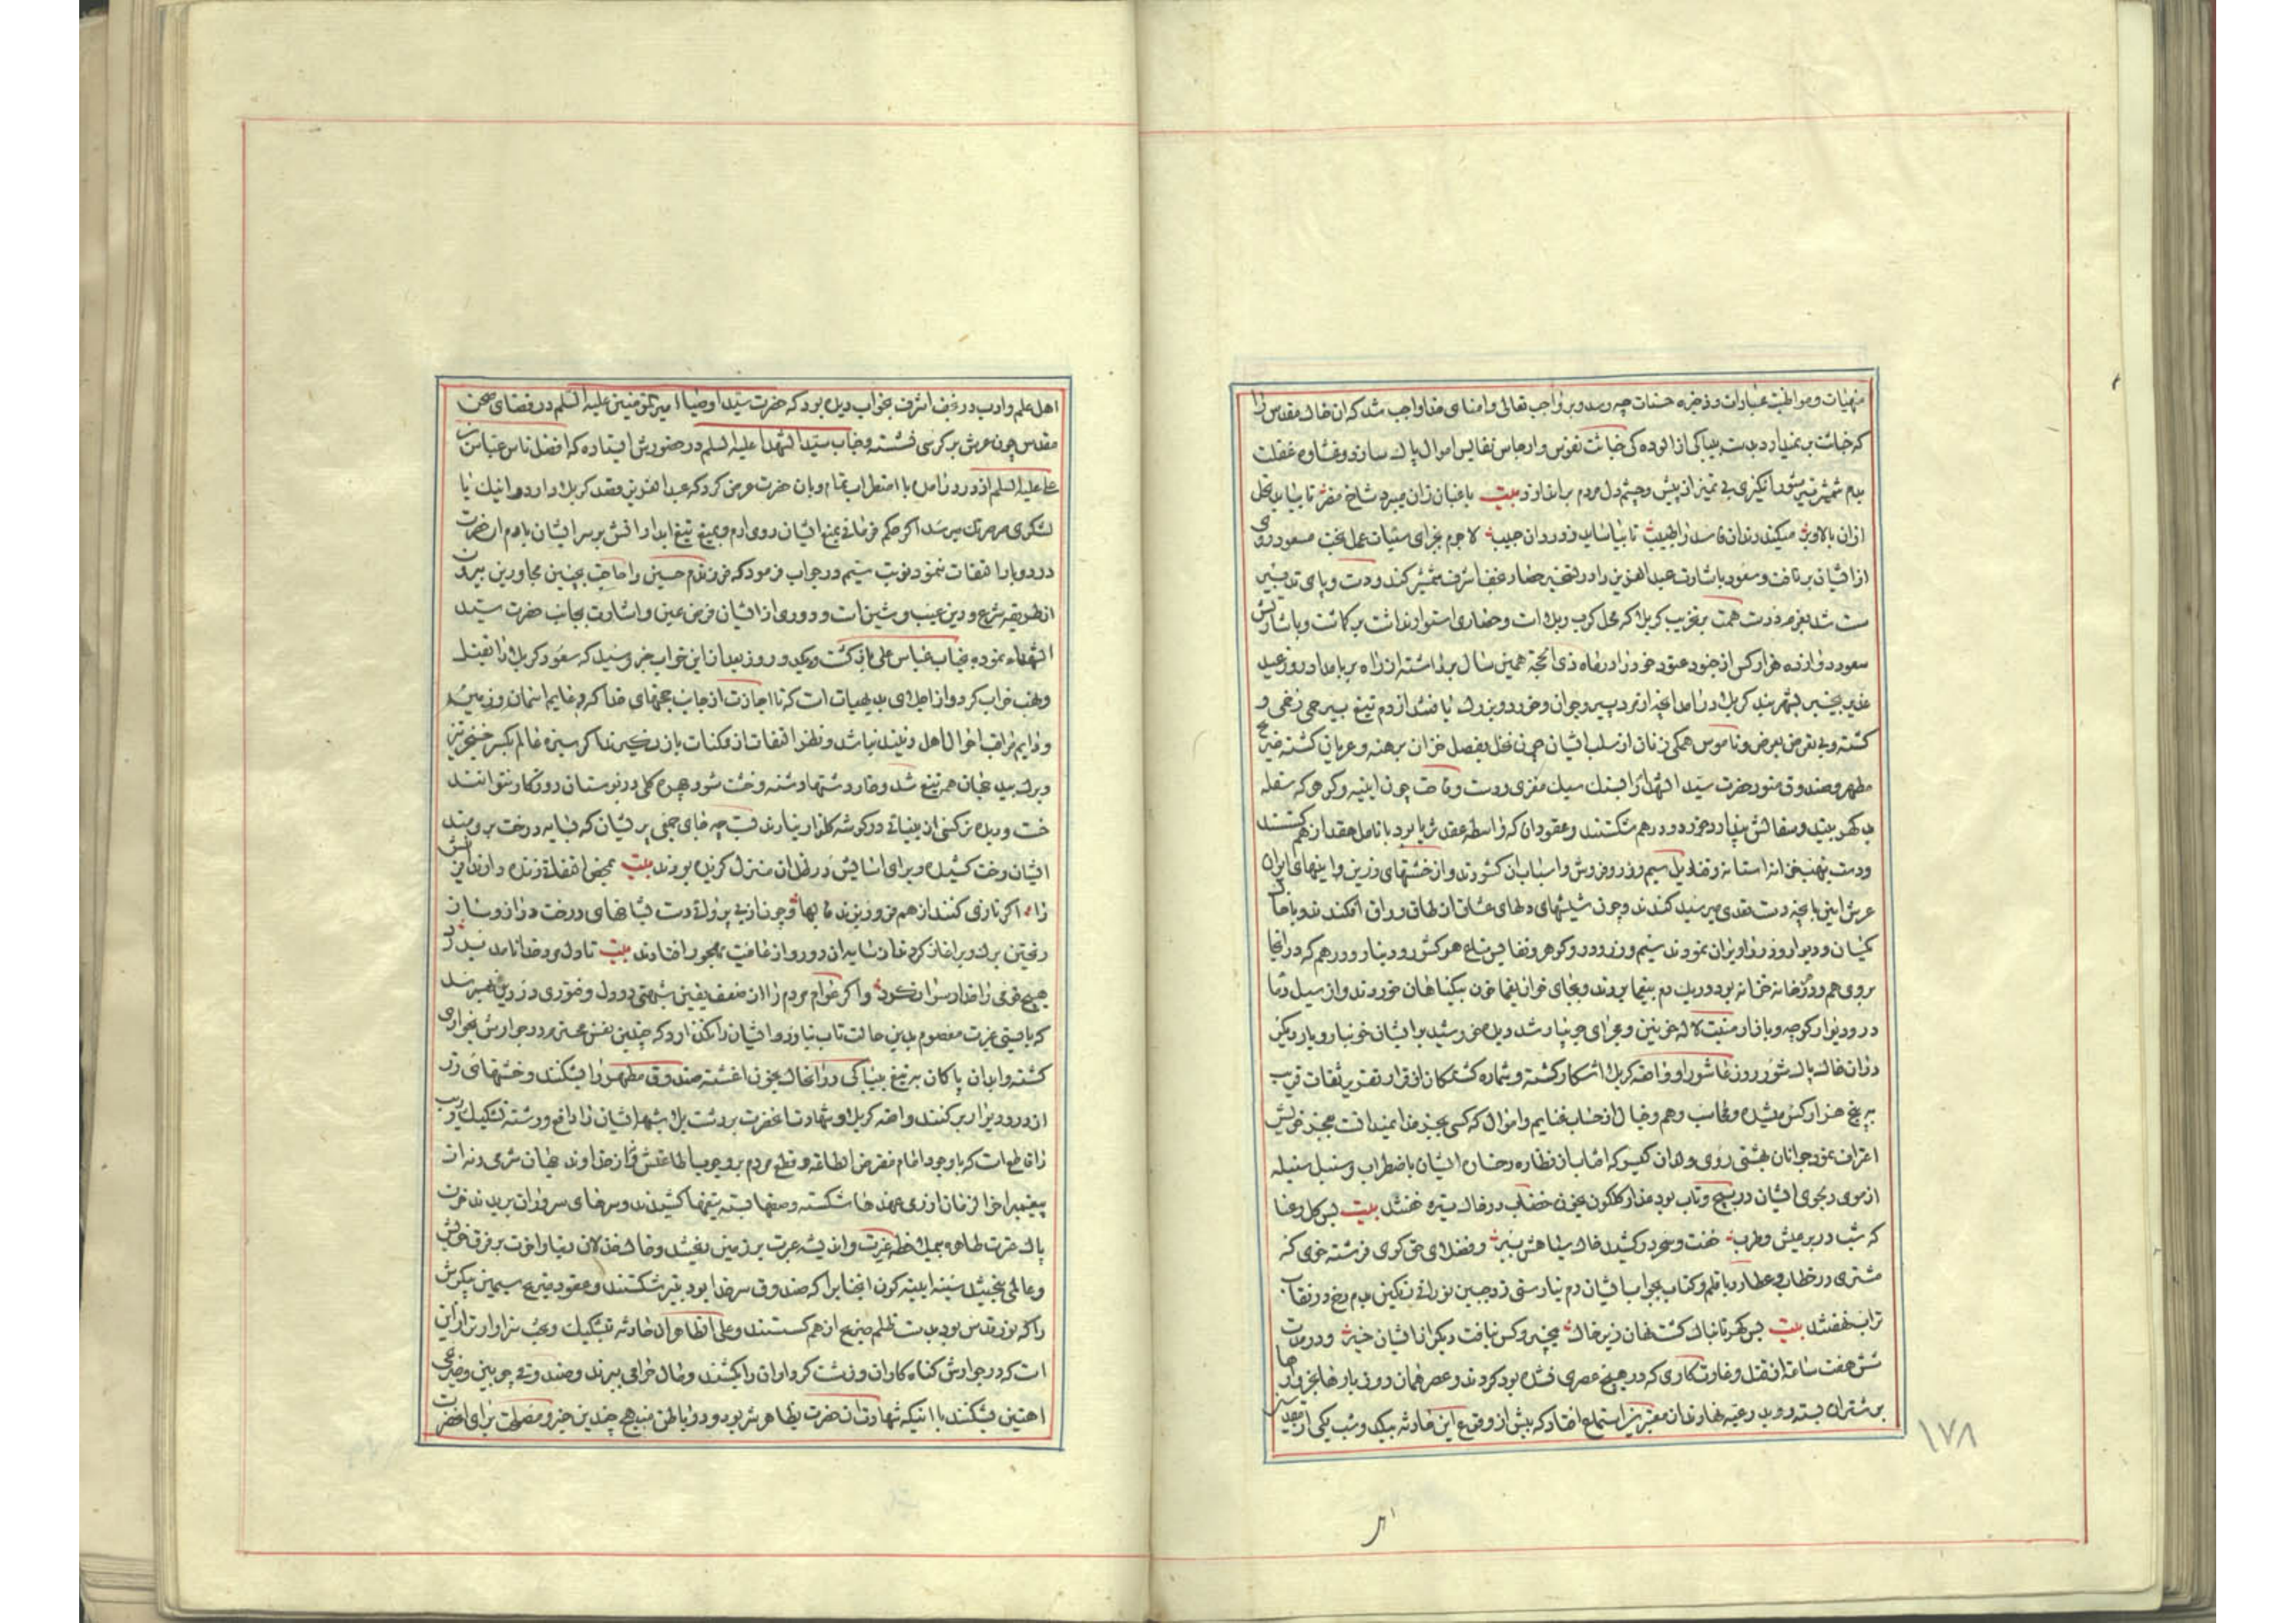 منهیات و مواظبت عبادات و ذخیره حسنات چه رسد و بر واجب تعالی و امنای خدا واجب شد که ان خاک مقدس را
که خباثت بر نمیدارد بدست بیباکی از الوده کی خباثت نفوس و ارجاس نفایس اموال پاک سازد و غشاوه غفلت
بدم شمشیر تیز از پیش چشم دل مردم براندازد بیت باغبان زان میبرد شاخ مضر تا بیابد نخل
ازان بالا و بر میکند دندان فاسد را طبیب تا بیاساید ز درد ان حبیب لاجرم بجزای سیئات عمل بخت مسعود روی
از ایشان بر تافت و سعود باشارت عبدالعزیز را در تسخیر حصار نجف اشرف شمشیر کند و دست و پای تدبیر
سست شد بعزم درست همت بر تخریب کربلا که محل کرب و بلا است و حصاری استوار نداشت بر کماشت و باشارتش
سعود دوازده هزار کس از جنود عنود خود را در ماه ذی الحجه همین سال برداشته از راه بر بامداد روز عید
غدیر بیخبر بشهر بند کربلا درامد انچه از مرد پیر و جوان و خرد و بزرک یافتند از دم تیغ بیرحمی زخمی و
کشته و بی تعرض بعرض و ناموس همکی زنان از سلب ایشان چون نخل بفصل خزان برهنه و عریان کشته ضریح
مطهر و صندوق منور حضرت سید الشهدا را بسنک سبک مغزی و دست وقاحت چون ابنیه و کوهی که سفله
بد کهر بیند و سفالش پندارد خورد و درهم شکستند و عقود ان که واسطه عقد ثریا بود بانامل حقد از هم کسستند
و دست بنهب خزانه استانه و قنادیل سیم و زر و فروش و اسباب ان کشودند و از خشتهای زرین و اینهای ایوان
عرش ایین با پنجه دست تعدی میرسید کندند و چون شیشهای دلهای عشاق از طاق رواق افکندند و با خاک
یکسان و دیوار و در را ویران نمودند سیم و زر و در و کوهر و نفایس متاع هر کشور و دینار و درهم که در انجا
بروی هم و در خانه خزانه بود در یکدم بیغما بردند و بجای خوان یغما خون بیکناهان خوردند و از سیل دما
در و دیوار کوچه و بازار منبت لاله خونین و مجرای جویبار شد و دیده خورشید بر ایشان خونبار و بار دیکر
دران خاک پاک شور روز عاشورا و واقعه کربلا اشکار کشته و شماره کشتکان از قرار تقریر ثقات قریب
به پنج هزار کس میشد و محاسب وهم و خیال از حساب غنایم و اموال که کسی بجز خدا نمیدانست بعجز خویش
اعتراف نمود جوانان بهشتی روی و لدان کیسو که افتاب از نظاره رخسار ایشان باضطراب و سنبل سنبله
از موی دلجوی ایشان در پیچ و تاب بود عذار کلکون بخون خضاب در خاک تیره خفتند بیت بس کل رعنا
که شب در بر عیش و طرب خفت و سحر در کشید خاک سیاهش ببر و فضلای حق کوی فرشته خوی که
مشتری در خطاب و عطارد با قلم و کتاب بجواب ایشان دم نیارستی زد جبین نورانی رنکین بدم رخ در نقاب
تراب نهفتند بیت بس کهر تابناک کشت نهان زیر خاک بیخبر و کس نیافت دیکر از ایشان خبر و در مدت
شش هفت ساعت از قتل و غارت کاری که در هیچ عصری نشده بود کردند و عصر همان روز بارها بخروارها
بر شتران بسته رو بدرعیه نهادند از معتبرین استماع افتاد که پیش از وقوع این حادثه بیکدو شب یکی از مقدسین
اهل علم و ادب در نجف اشرف بخواب دیده بود که حضرت سید اوصیا امیر المؤمنین علیه السلم در فضای صحن
مقدس چون عرش بر کرسی نشسته و جناب سید الشهدا علیه السلم در حضورش ایستاده که افضل ناس عباس بن
علی علیه السلم از در درامد با اضطراب تمام و بان حضرت عرض کرد که عبدالعزیز قصد کربلا دارد و اینک با
لشکری مرمرتک میرسد اکر حکم فرمائی بمنع ایشان روی ارم و بمیغ تیغ ابدار اتش بر سر ایشان بارم ان حضرت
در دو بار التفات ننمود نوبت سیم در جواب فرمود که فرزندم حسین را حاجت بچنین مجاورین بیرون
از طریقه شرع و دین عیب و شین است و دوری از ایشان فرض عین و اشارت بجانب حضرت سید
الشهداء نموده جناب عباس علی باز کشت و یکدو روز بعد از این خواب خبر رسید که سعود کربلا را بقتل
و نهب خراب کرد و از اجلای بدیهیات است که تا اجازت از جانب حجتهای خدا که قوایم اسمان و زمین اند
و دایم مراقب احوال اهل دنیایند نباشد و نظر التفات از مکنات باز نکیرند اکر سبزه عالم یکسر خنجر تیز
و برک بید جهان همه تیغ شد و خار دشتها دشنه و خشت شود چهره کلی در بوستان روزکار نتوانند
خست و دیده نرکسی از بینائی در کوشه کلزار نیارند بست چه جای جمعی پریشان که بسایه درخت برومند
ایشان رخت کشیده و برای اسایش در ظل ان منزل کزیده بودند بیت بمحض التفاتی زنده دارد افرینش
را اکر نازی کند از هم فرو ریزند قالبها و چون از بی پروائی دست بشاخهای درخت دراز و ساز
ریختن برک و بر اغاز کردند از سایه ان دور و از عافیت مهجور افتادند بیت تا دل مرد خدا نامد بدرد
هیچ قومی را خدا رسوا نکرد و اکر عوام مردم را از ضعف یقین شبهتی در دل و فتوری در دین بهم رسد
که با چنین عزت معصوم بدین حالت تاب نیاورد و ایشان را نکذارد که چندین نفس محترم در جوارش بخواری
کشته و ابدان پاکان به تیغ بیباکی در انخاک بخون اغشته صندوق مطهر را بشکنند و خشتهای زر
از در و دیوار بر کنند واقعه کربلا و شهادت انحضرت بر دشت بلا شبهه ایشان را دافع و رشته تشکیک و ریب
را قاطع است که با وجود امام مفترض الطاعه و قطع مردم بر وجوب اطاعتش و از خداوند جهان شرمی و نه از
پیغمبر اخر الزمان ازرمی عهدها شکسته و صفها بسته تیغها کشیدند و سرهای سروران بریدند حضرت
پاک عترت طاهره بیملاحظه غیرت و اندیشه عبرت بر زمین ریختند و خاک خذلان دنیا و اخرت بر فرق خویش
و عالمی بیختند سینه ایینه کون انجنابرا که صندوق سر خدا بود بتیر شکستند و عقود ضریح سیمین پیکرش
را که نور قدس بود بدست ظلم صریح از هم کسستند و علی الظاهر ان حادثه بتشکیک و تعجب سزاوارتر از این
است که در جوارش کناه کاران و زشت کرداران را بکشند و مال حرامی ببرند و صندوقی چوبین و ضریحی
اهنین بشکنند با انیکه شهادت ان حضرت بظاهر شر بود و در باطن منبع چندین خیر و مصلحت برای احضرت
۱۷۸